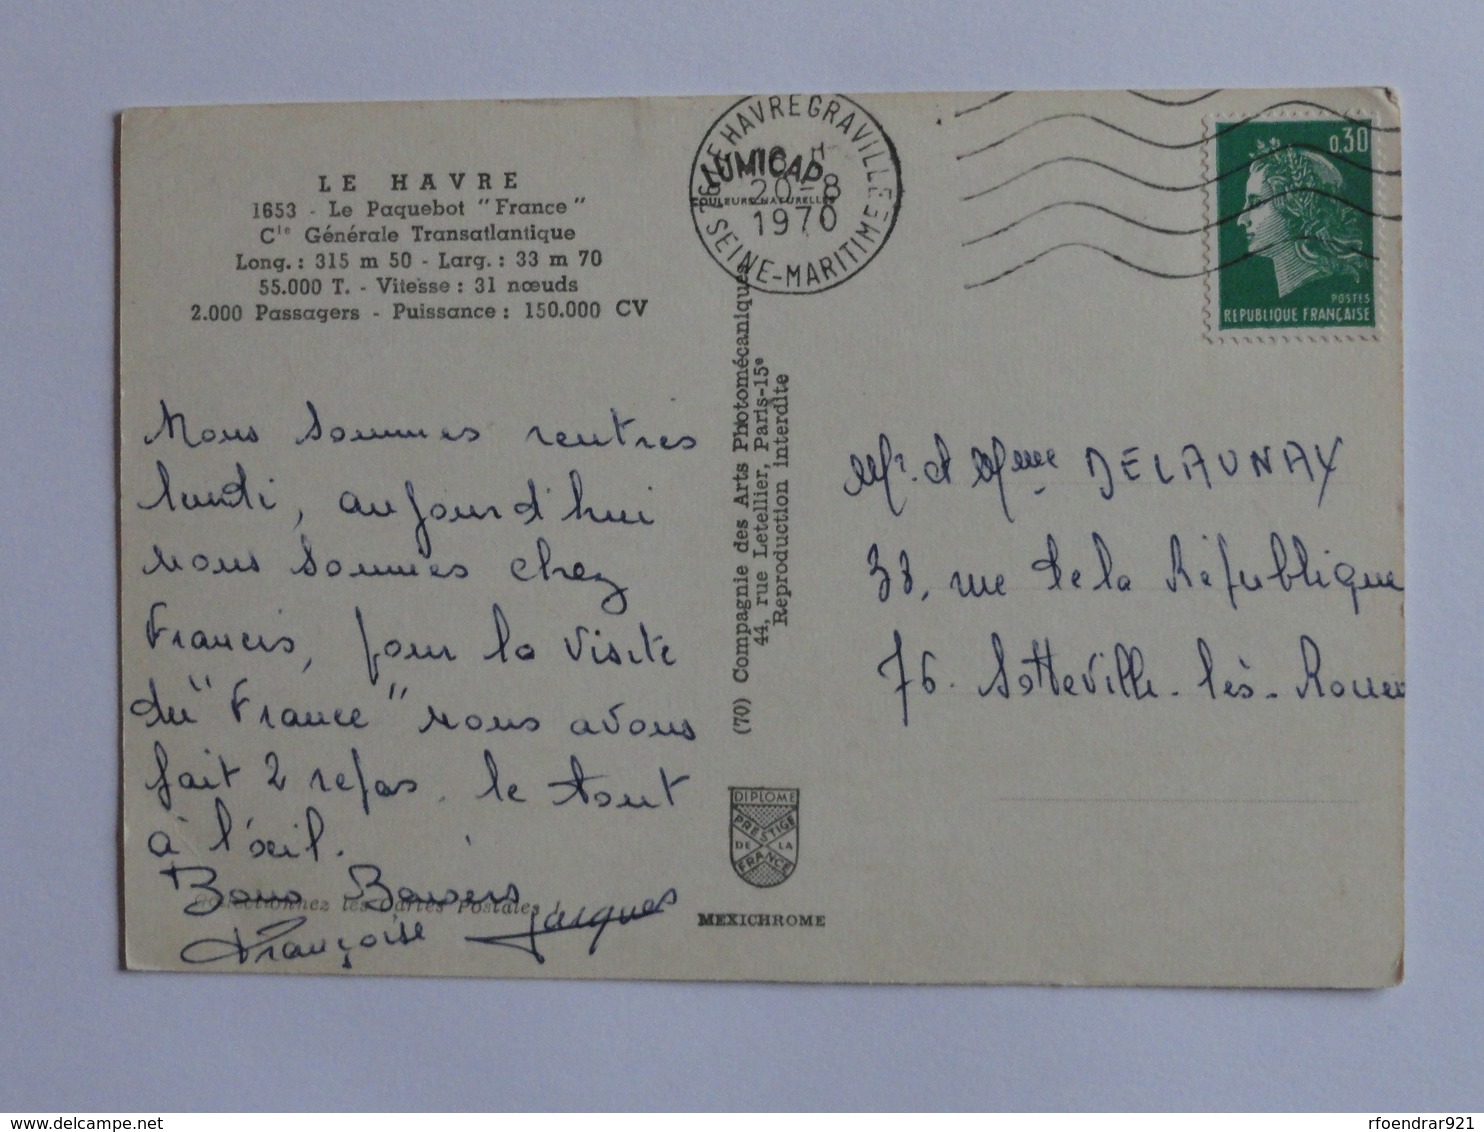 LE HAVRE
1653 - Le Paquebot "France"
Cie Générale Transatlantique
Long. : 315 m 50 - Larg. : 33 m 70
55.000 T. - Vitesse : 31 nœuds
2.000 Passagers - Puissance : 150.000 CV
Nous sommes rentrés
lundi, aujourd'hui
nous sommes chez
Francis, pour la visite
du "France" nous avons
fait 2 repas. le tout
à l'œil.
Bons Baisers
Françoise Jacques
Collectionnez les Cartes Postales !
LUMICAP
COULEURS NATURELLES
76 LE HAVRE GRAVILLE
20-8
1970
SEINE-MARITIME
(70) Compagnie des Arts Photomécaniques
44, rue Letellier, Paris-15e
Reproduction interdite
DIPLOME
PRESTIGE
DE LA
FRANCE
MEXICHROME
0,30
POSTES
REPUBLIQUE FRANÇAISE
Mr et Mme DELAUNAY
33, rue de la République
76. Sotteville-lès-Rouen
delcampe.net
rfoendrar921